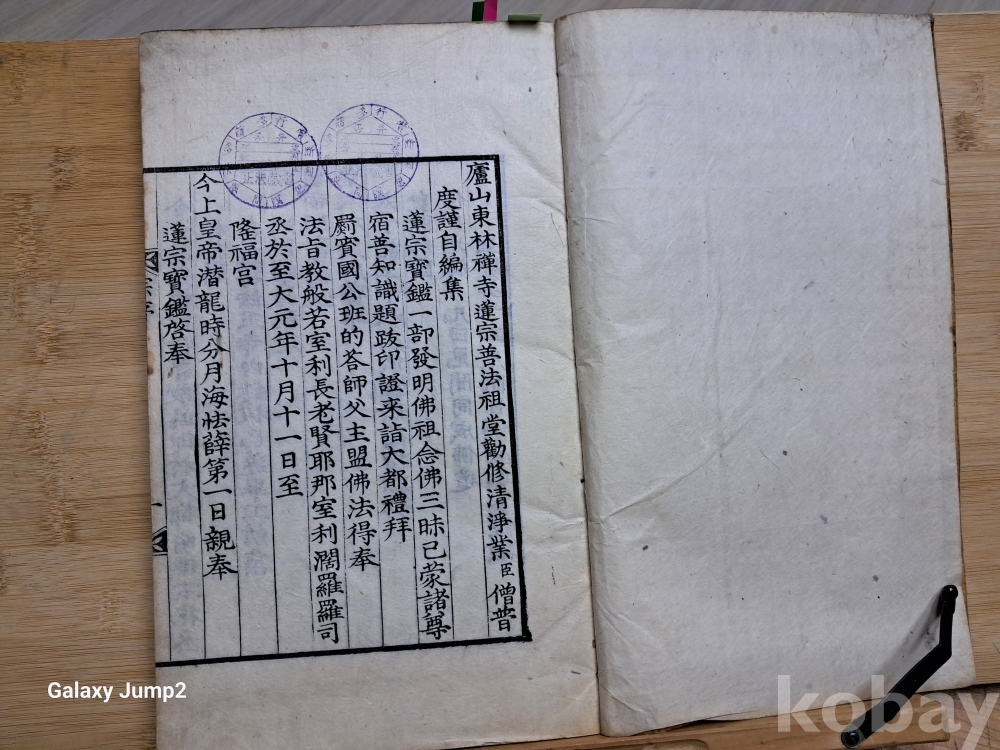 廬山東林禪寺蓮宗善法祖堂勸修清淨業臣僧普
度謹自編集
蓮宗寶鑑一部發明佛祖念佛三昧已蒙諸尊
宿善知識題跋印證來詣大都禮拜
罽賓國公班的荅師父主盟佛法得奉
法旨教般若室利長老賢耶那室利濶羅羅司
丞於至大元年十月十一日至
隆福宮
今上皇帝潜龍時分月海怯薛第一日親奉
蓮宗寶鑑啓奉
Galaxy Jump2
kobay